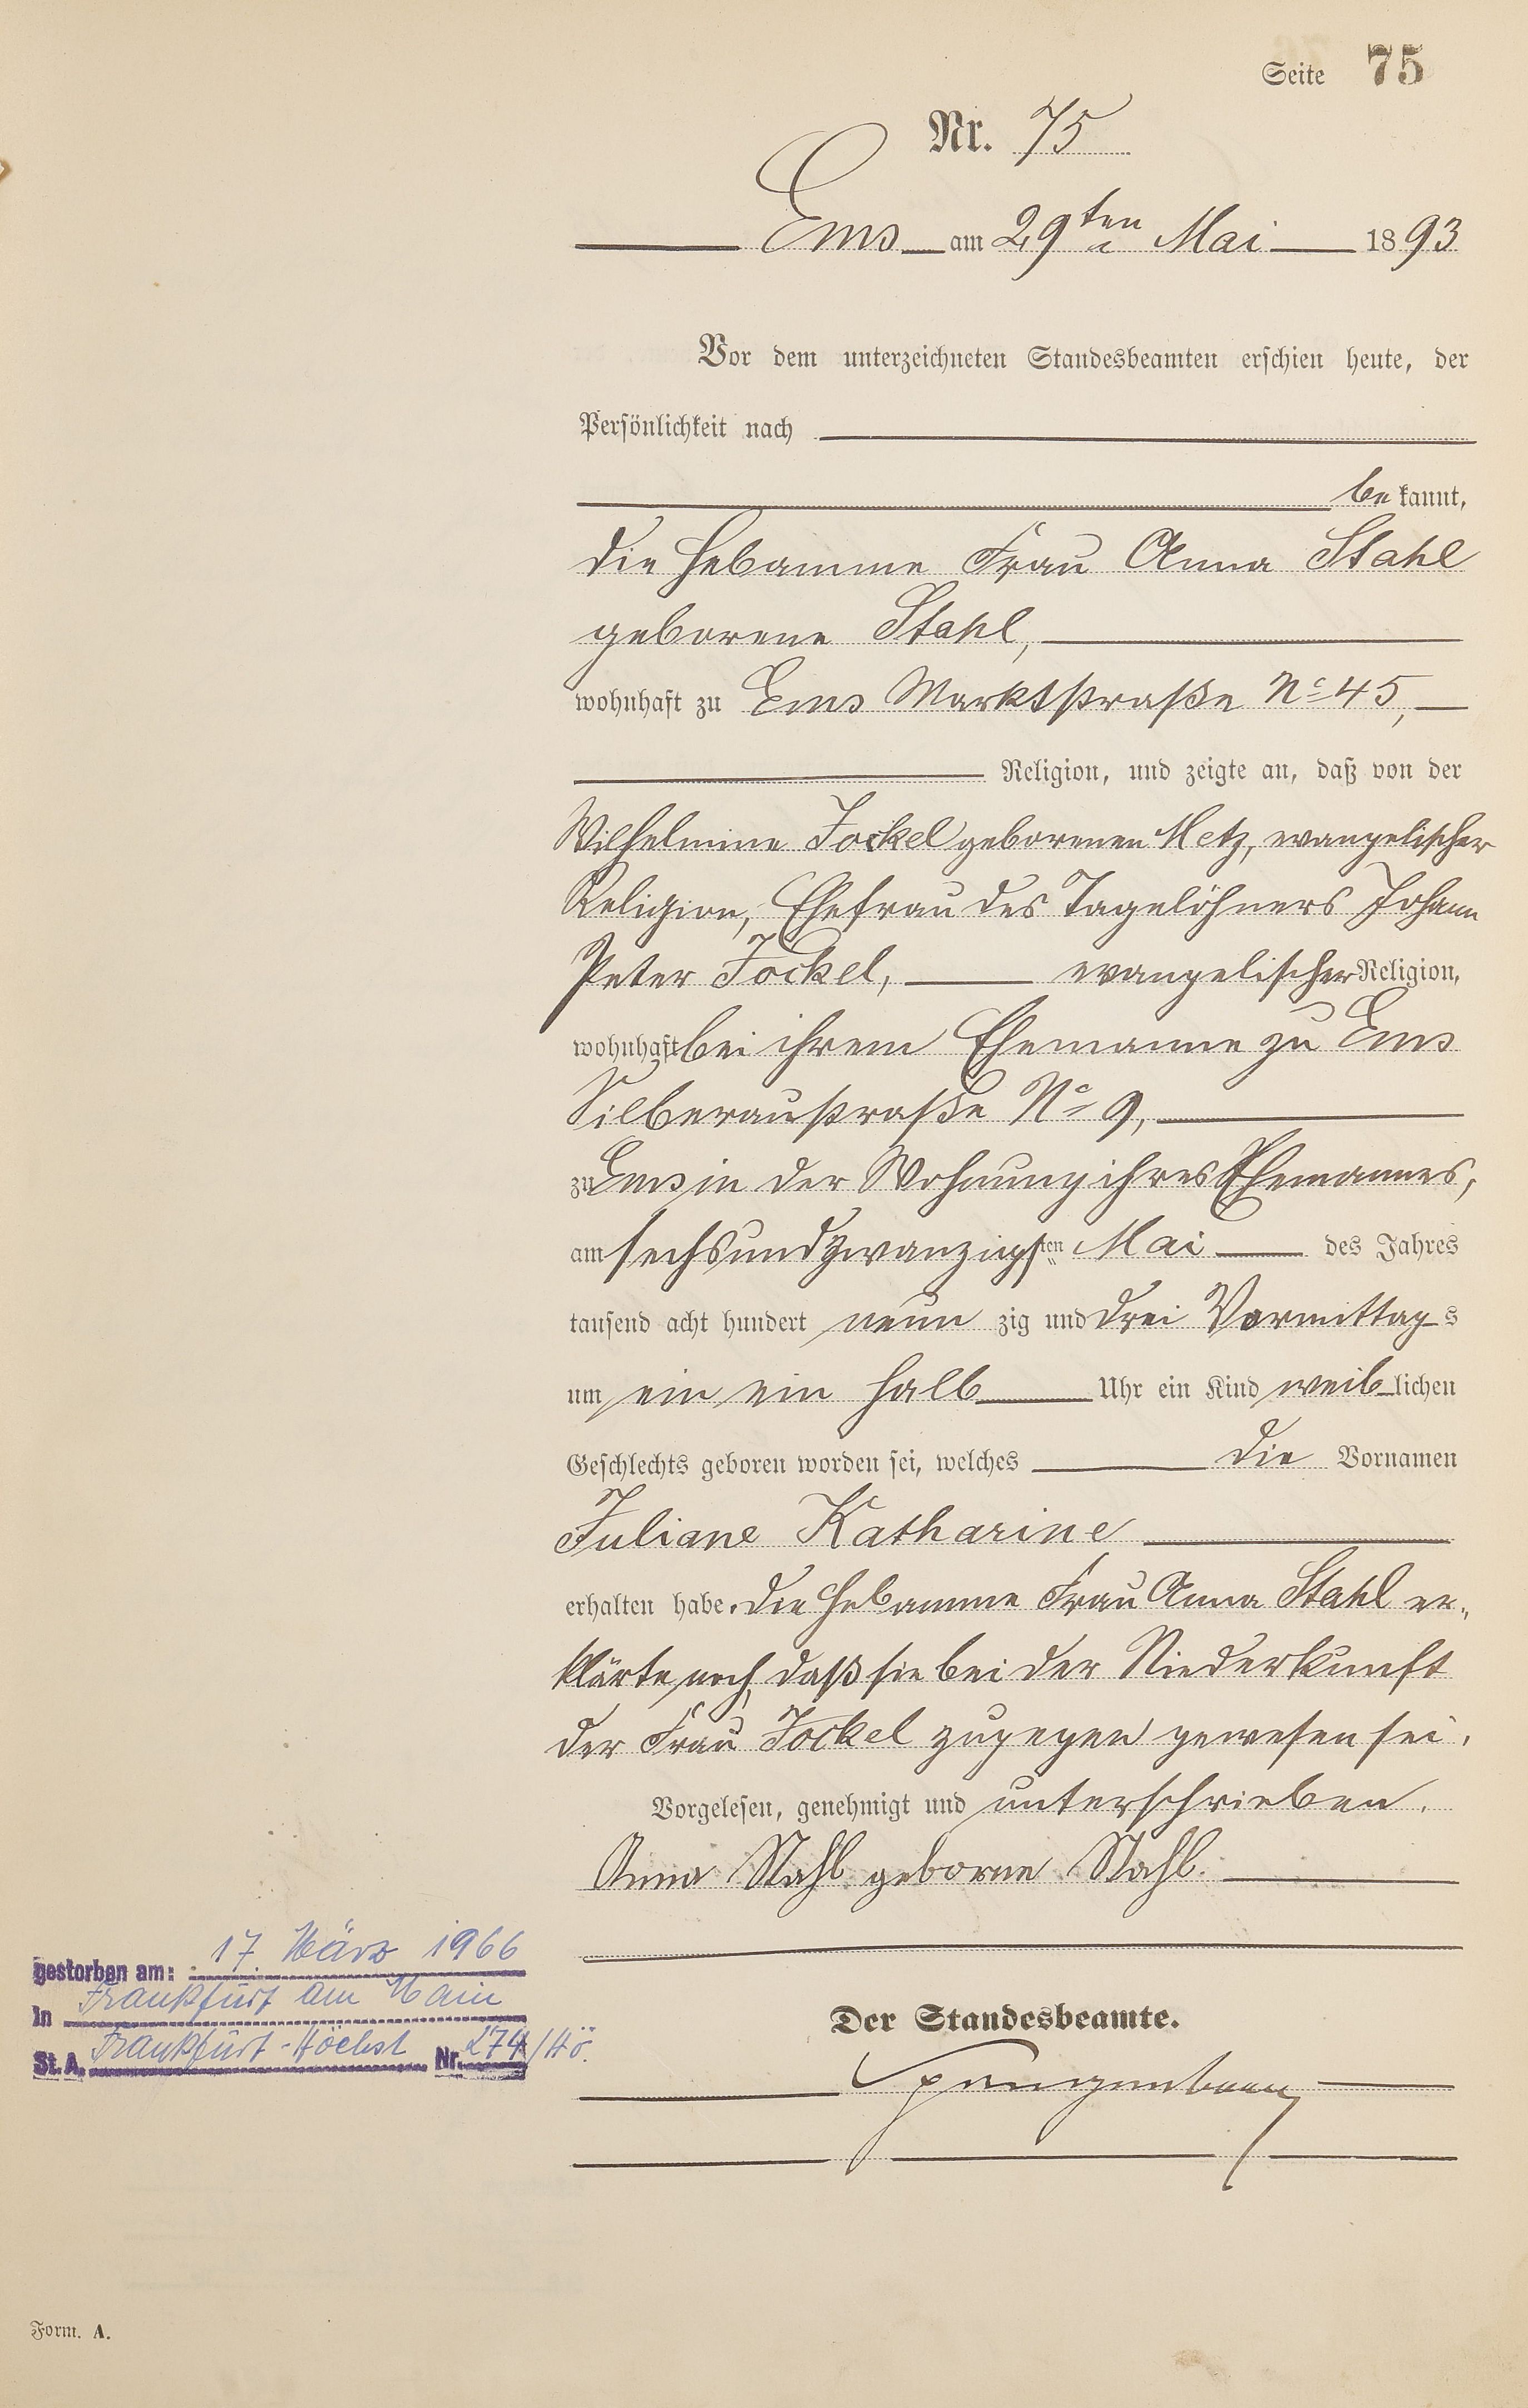 Seite 75
Nr. 75
Ems am 29ten Mai 1893
Vor dem unterzeichneten Standesbeamten erschien heute, der
Persönlichkeit nach
be kannt,
die Hebamme Frau Anna Stahl
geborene Stahl,
wohnhaft zu Ems Marktstraße No 45,
Religion, und zeigte an, daß von der
Wilhelmine Jockel geborenen Metz, evangelischer
Religion, Ehefrau des Tagelöhners Johann
Peter Jockel, evangelischer Religion,
wohnhaft bei ihrem Ehemanne zu Ems
Silberaustraße No 9,
zu Ems in der Wohnung ihres Ehemannes,
am sechsundzwanzigsten Mai des Jahres
tausend acht hundert neun zig und drei Vormittags
um ein ein halb Uhr ein Kind weiblichen
Geschlechts geboren worden sei, welches die Vornamen
Juliane Katharine
erhalten habe. Die Hebamme Frau Anna Stahl er-
klärte noch, daß sie bei der Niederkunft
der Frau Jockel zugegen gewesen sei.
Vorgelesen, genehmigt und unterschrieben.
Anna Stahl geborne Stahl.
gestorben am: 17. März 1966
in Frankfurt am Main
St. A. Frankfurt-Höchst Nr. 274/Hö.
Der Standesbeamte.
Form. A.